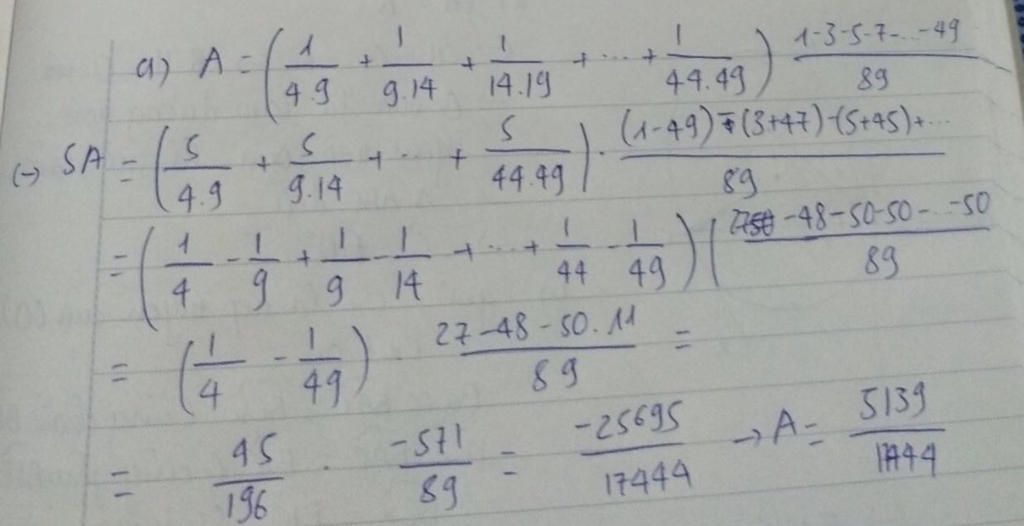 a) A = (1/4.9 + 1/9.14 + 1/14.19 + ... + 1/44.49) 1-3-5-7-...-49/89
(-) 5A = (5/4.9 + 5/9.14 + ... + 5/44.49) . (1-49)-(3+47)-(5+45)+.../89
= (1/4 - 1/9 + 1/9 - 1/14 + ... + 1/44 - 1/49) ( -48-50-50-...-50/89
= (1/4 - 1/49) . 27-48-50.11/89 =
= 45/196 . -571/89 = -25695/17444 → A = 5139/17444